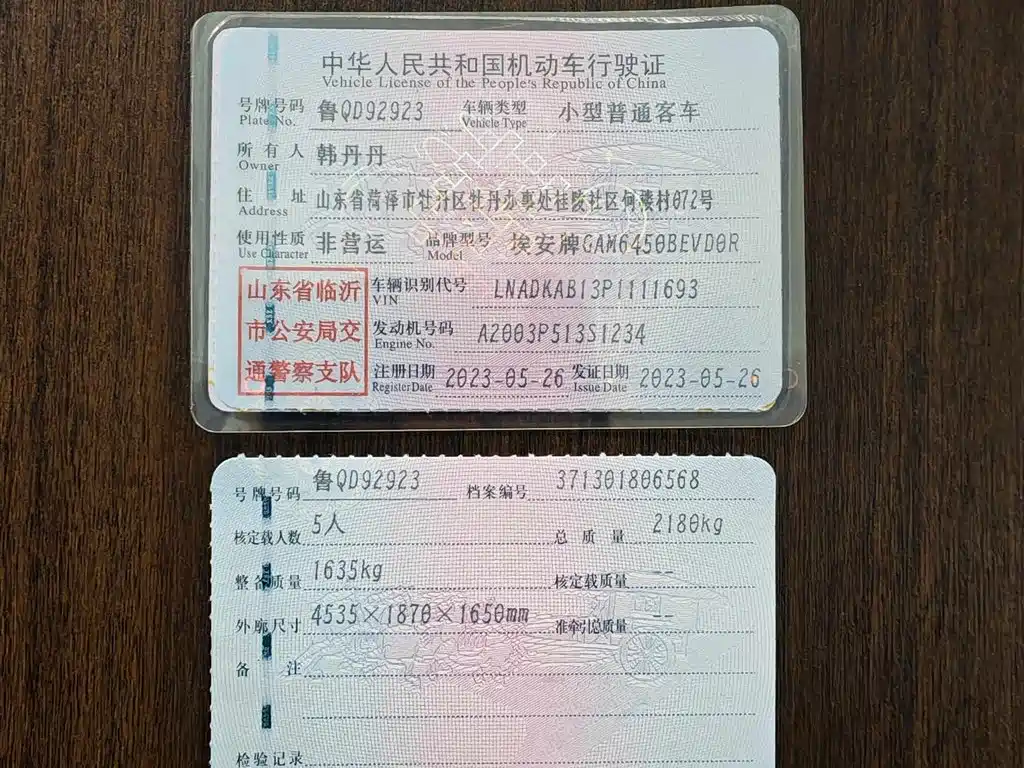 中华人民共和国机动车行驶证
Vehicle License of the People's Republic of China
号牌号码 鲁QD92923 车辆类型 小型普通客车
Plate No. Vehicle Type
所有人 韩丹丹
Owner
住址 山东省菏泽市牡丹区牡丹办事处桂陵社区何楼村072号
Address
使用性质 非营运 品牌型号 埃安牌GAM6450BEVD0R
Use Character Model
山东省临沂
市公安局交
通警察支队
车辆识别代号 LNADKAB13P1111693
VIN
发动机号码 A2003P513S1234
Engine No.
注册日期 2023-05-26 发证日期 2023-05-26
Register Date Issue Date
号牌号码 鲁QD92923 档案编号 371301806568
核定载人数 5人 总质量 2180kg
整备质量 1635kg 核定载质量 --
外廓尺寸 4535×1870×1650mm 准牵引总质量 --
备注
检验记录